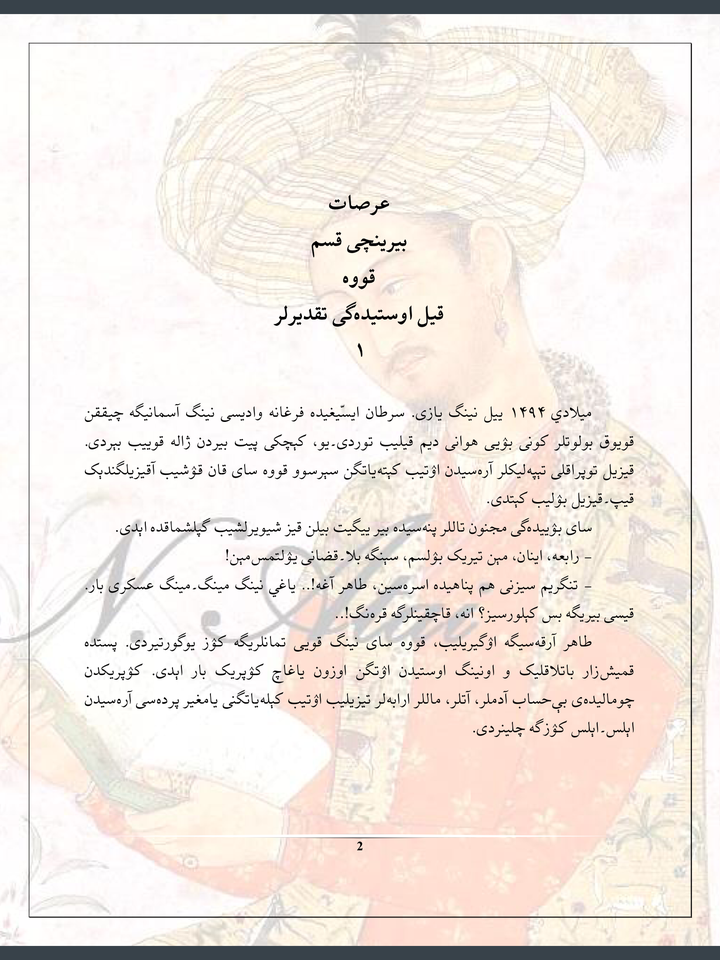 عرصات
بیرینچی قسم
قووه
قیل اوستیده‌گی تقدیرلر
۱
میلادي ۱۴۹۴ ییل نینگ یازی. سرطان ایسّیغیده فرغانه وادیسی نینگ آسمانیگه چیققن
قویوق بولوتلر کونی بۉیی هوانی دیم قیلیب توردی۔یو، کېچکی پیت بیردن ژاله قوییب بېردی.
قیزیل توپراقلی تېپه‌لیکلر آره‌سیدن اۉتیب کېته‌یاتگن سېرسوو قووه سای قان قۉشیب آقیزیلگندېک
قیپ۔قیزیل بۉلیب کېتدی.
سای بۉییده‌گی مجنون تاللر پنه‌سیده بیر ییگیت بیلن قیز شیویرلشیب گپلشماقده اېدی.
– رابعه، اینان، مېن تیریک بۉلسم، سېنگه بلا۔قضانی یۉلتمس‌مېن!
– تنگریم سیزنی هم پناهیده اسره‌سین، طاهر آغه!.. یاغي نینگ مینگ۔مینگ عسکری بار.
قیسی بیریگه بس کېلورسیز؟ انه، قاچقینلرگه قره‌نگ!..
طاهر آرقه‌سیگه اۉگیریلیب، قووه سای نینگ قویی تمانلریگه کۉز یوگورتیردی. پستده
قمیش‌زار باتلاقلیک و اونینگ اوستیدن اۉتگن اوزون یاغاچ کۉپریک بار اېدی. کۉپریکدن
چومالیده‌ی بې‌حساب آدملر، آتلر، ماللر ارابه‌لر تیزیلیب اۉتیب کېله‌یاتگنی یامغیر پرده‌سی آره‌سیدن
اېلس۔اېلس کۉزگه چلینردی.
2